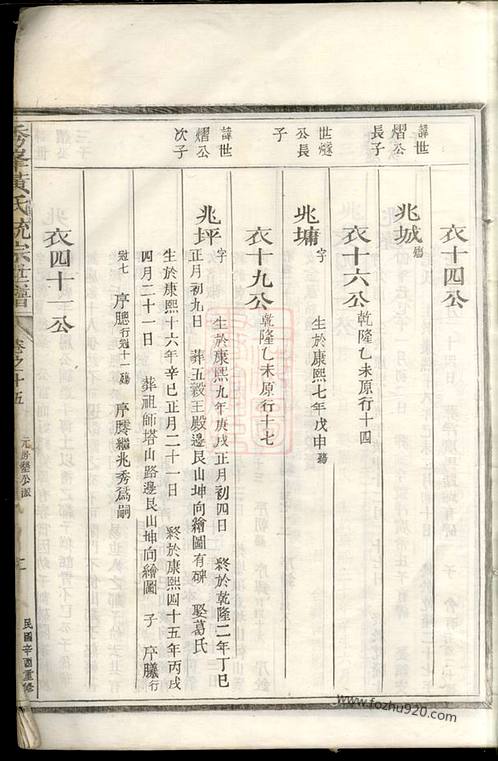 衣十四公
諱世熠公長子
兆城 殤
衣十六公 乾隆乙未原行十四
世燧公長子
兆墉 字 生於康熙七年戊申 殤
衣十九公 乾隆乙未原行十七
諱世熠公次子
兆坪 字 生於康熙九年庚戌正月初四 終於乾隆二年丁巳
正月初九日 葬五穀王殿邊艮山坤向繪圖有碑 娶葛氏
生於康熙十六年辛巳正月二十一日 終於康熙四十五年丙戌
四月二十一日 葬祖師塔山路邊艮山坤向繪圖 子 序 行
冠七 序 行冠十一殤 序 繼兆秀為嗣
衣四十一公
秀峯黃氏統宗世譜 卷之十五
民國辛酉重修
www.fozhu920.com